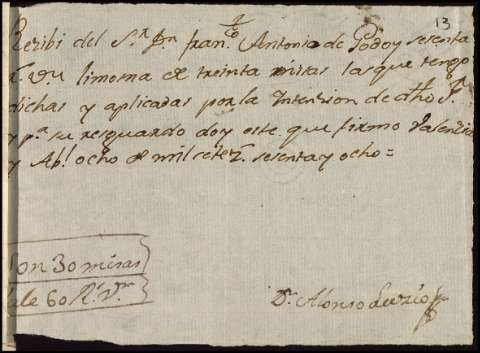 13
Rezibi del S.r D.n fran.co Antonio de Godoy sesenta
r.s V.n limosna de treinta misas las que tengo
dichas y aplicadas por la Intension de dho S.r
y p.a su resguardo doy este que firmo Valencia
y Ab.l ocho de mil setez.s sesenta y ocho =
Son 30 misas
Vale 60 R.s V.n
D.n Alonso